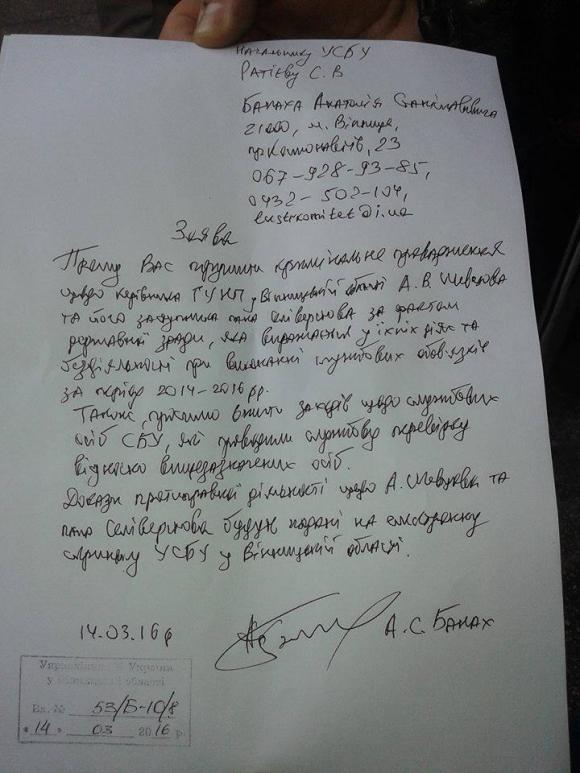 Начальнику УСБУ
Ратієву С. В
Банаха Анатолія Станіславовича
21000, м. Вінниця,
пр Космонавтів, 23
067-928-93-85,
0432-502-104,
lustrkomitet@i.ua
Заява
Прошу Вас порушити кримінальне провадження
щодо керівника ГУНП у Вінницькій області А. В. Шевцова
та його заступника пана Селівернова за фактом
державної зради, яка виражається у їхніх діях та
бездіяльності при виконанні службових обов'язків
за період 2014-2016 рр.
Також, просимо вжити заходів щодо службових
осіб СБУ, які проводили службову перевірку
відносно вищезазначених осіб.
Докази протиправної діяльності щодо А. Шевцова та
пана Селівернова будуть подані на електронну
УСБУ у Вінницькій області.
14.03.16 р
А. С. Банах
Україна
у Вінницькій області
Вх. № 53/Б-10/8
« 14 » 03 2016 р.